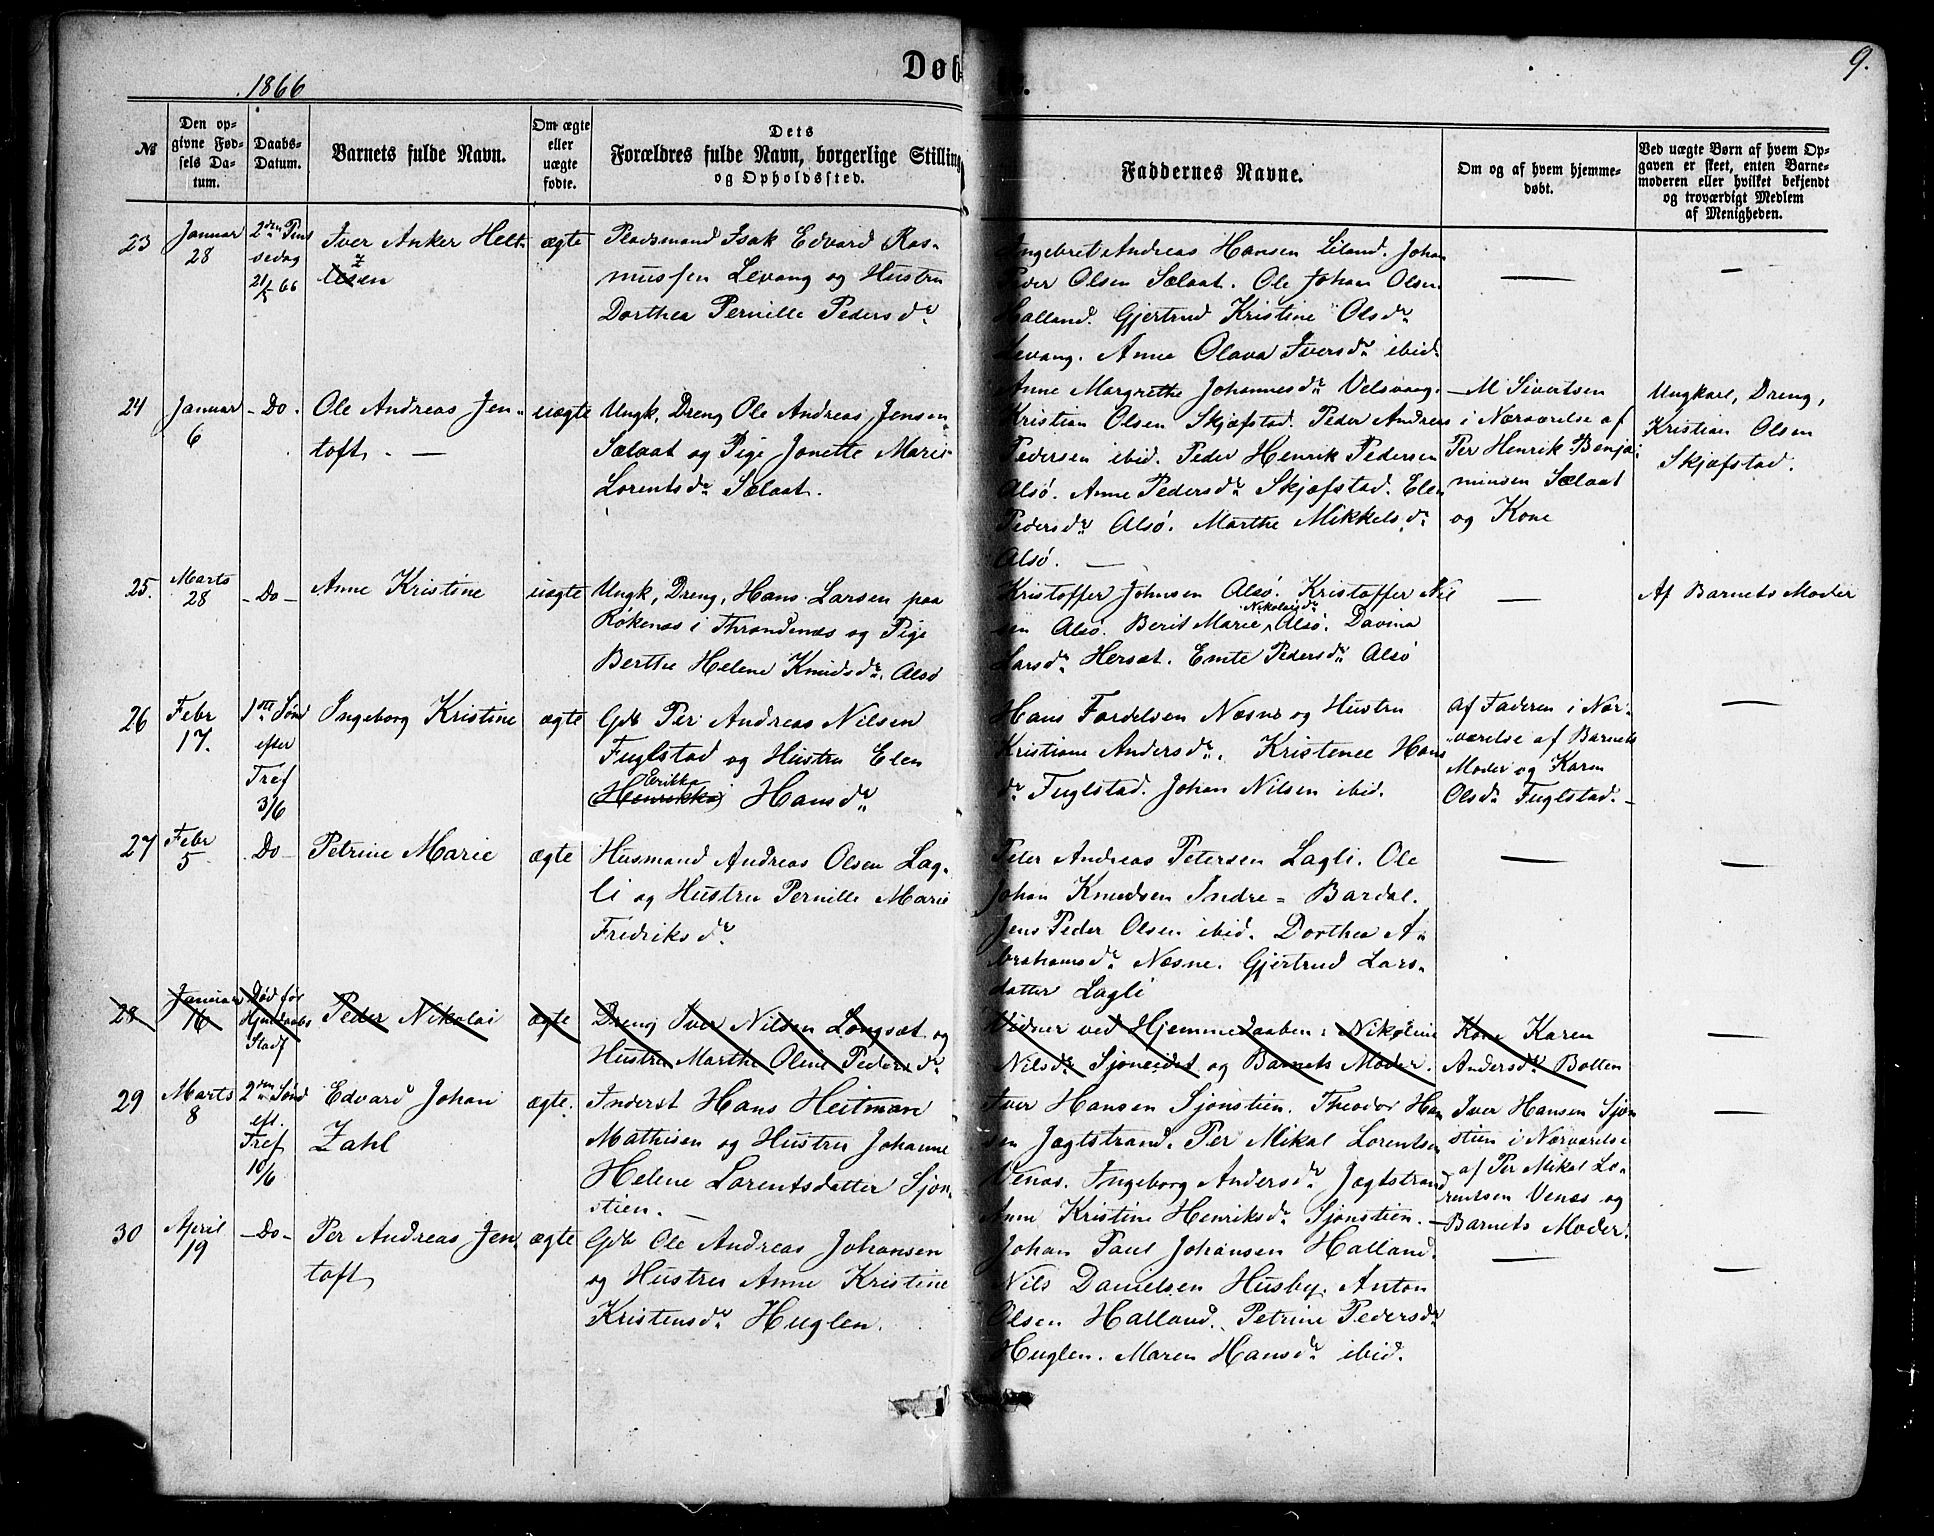 1866
Døb
9.
№
Den opgivne Fødsels Datum.
Daabs-Datum.
Barnets fulde Navn.
Om ægte eller uægte fødte.
Dets Forældres fulde Navn, borgerlige Stilling og Opholdssted.
Faddernes Navne.
Om og af hvem hjemmedøbt.
Ved uægte Børn af hvem Opgaven er skeet, enten Barnemoderen eller hvilket bekjendt og troværdigt Medlem af Menigheden.
23
Januar 28
2den Pintsedag 21/5 66
Iver Anker Helt
zen
ægte
Pladsmand Isak Edvard Ras-
mussen Levang og Hustru
Dorthea Pernille Pedersdr
Ingebret Andreas Hansen Leland. Johan
Peder Olsen Sælaat. Ole Johan Olsen
Halland. Gjertrud Kristine Olsdr
Levang. Anne Olava Iversdr ibid.
—
—
24
Januar 6
- Do -
Ole Andreas Jen-
toft. —
uægte
Ungk, Dreng Ole Andreas Jensen
Sælaat og Pige Jonette Marie
Lorentsdr Sælaat.
Anne Margrethe Johannesdr Velsvaag.
Kristian Olsen Skjæfstad. Peder Andreas
Pedersen ibid. Peder Henrik Pedersen
Alsø. Anne Pedersdr Skjæfstad. Elen
Pedersdr Alsø. Marthe Mikkelsdr
Alsø. —
M Sivertsen
i Nærværelse af
Per Henrik Benja-
minsen Sælaat
og Kone
Ungkarl, Dreng,
Kristian Olsen
Skjæfstad.
25.
Marts 28
- Do -
Anne Kristine
uægte
Ungk, Dreng, Hans Larsen paa
Røkenæs i Throndenæs og Pige
Berthe Helene Knudsdr. Alsø
Kristoffer Johnsen Alsø. Kristoffer Niel
sen Alsø. Berit Marie Nikolaisdr Alsø. Davina
Larsdr Hersæt. Emte Pedersdr Alsø
—
Af Barnets Moder
26
Febr 17.
1ste Sønd efter Tref 3/6
Ingeborg Kristine
ægte
Gdb Per Andreas Nilsen
Fuglstad og Hustru Elen
Erikka
(Henrikka) Hansdr
Hans Fordelsen Næsne og Hustru
Kristiane Andersdr. Kristence Hans
dr Fuglstad. Johan Nilsen ibid.
Af Faderen i Nær-
værelse af Barnets
Moder og Karen
Olsdr Fuglstad. —
—
27
Febr 5
Do -
Petrine Marie
ægte
Husmand Andreas Olsen Lag-
li og Hustru Pernille Marie
Fredriksdr
Peter Andreas Petersen Lagli. Ole
Johan Knudsen Indre = Bardal.
Jens Peder Olsen ibid. Dorthea A-
brahamsdr Næsne. Gjertrud Lars-
datter Lagli
—
—
28
Januar 16
Død før Hjemdaabs Stadf
Peder Nikolai
ægte
Dreng Iver Nilsen Longsæt og
Hustru Marthe Oline Pedersdr
Vidner ved Hjemmedaaben: Nikoline
Nilsdr Sjoneidet og Barnets Moder.
Kone Karen
Andersdr Botten
—
29
Marts 8
2den Sønd eft. Tref 10/6
Edvard Johan
Zahl
ægte.
Inderst Hans Heitman
Mathisen og Hustru Johanne
Helene Lorentsdatter Sjon-
stien. —
Iver Hansen Sjonstien. Theodor Han
sen Jægtstrand. Per Mikal Lorentsen
Venæs. Ingeborg Andersdr Jægtstrand
Anne Kristine Henriksdr Sjonstien. —
Iver Hansen Sjon
stien i Nærværelse
af Per Mikal Lo-
rentsen Venæs og
Barnets Moder.
—
30
April 19
- Do -
Per Andreas Jen
toft
ægte
Gdb Ole Andreas Johansen
og Hustru Anne Kristine
Kristensdr Huglen.
Johan Paul Johansen Halland.
Nils Danielsen Husby. Anton
Olsen Halland. Petrine Pedersdr
Huglen. Maren Hansdr ibid.
—
—